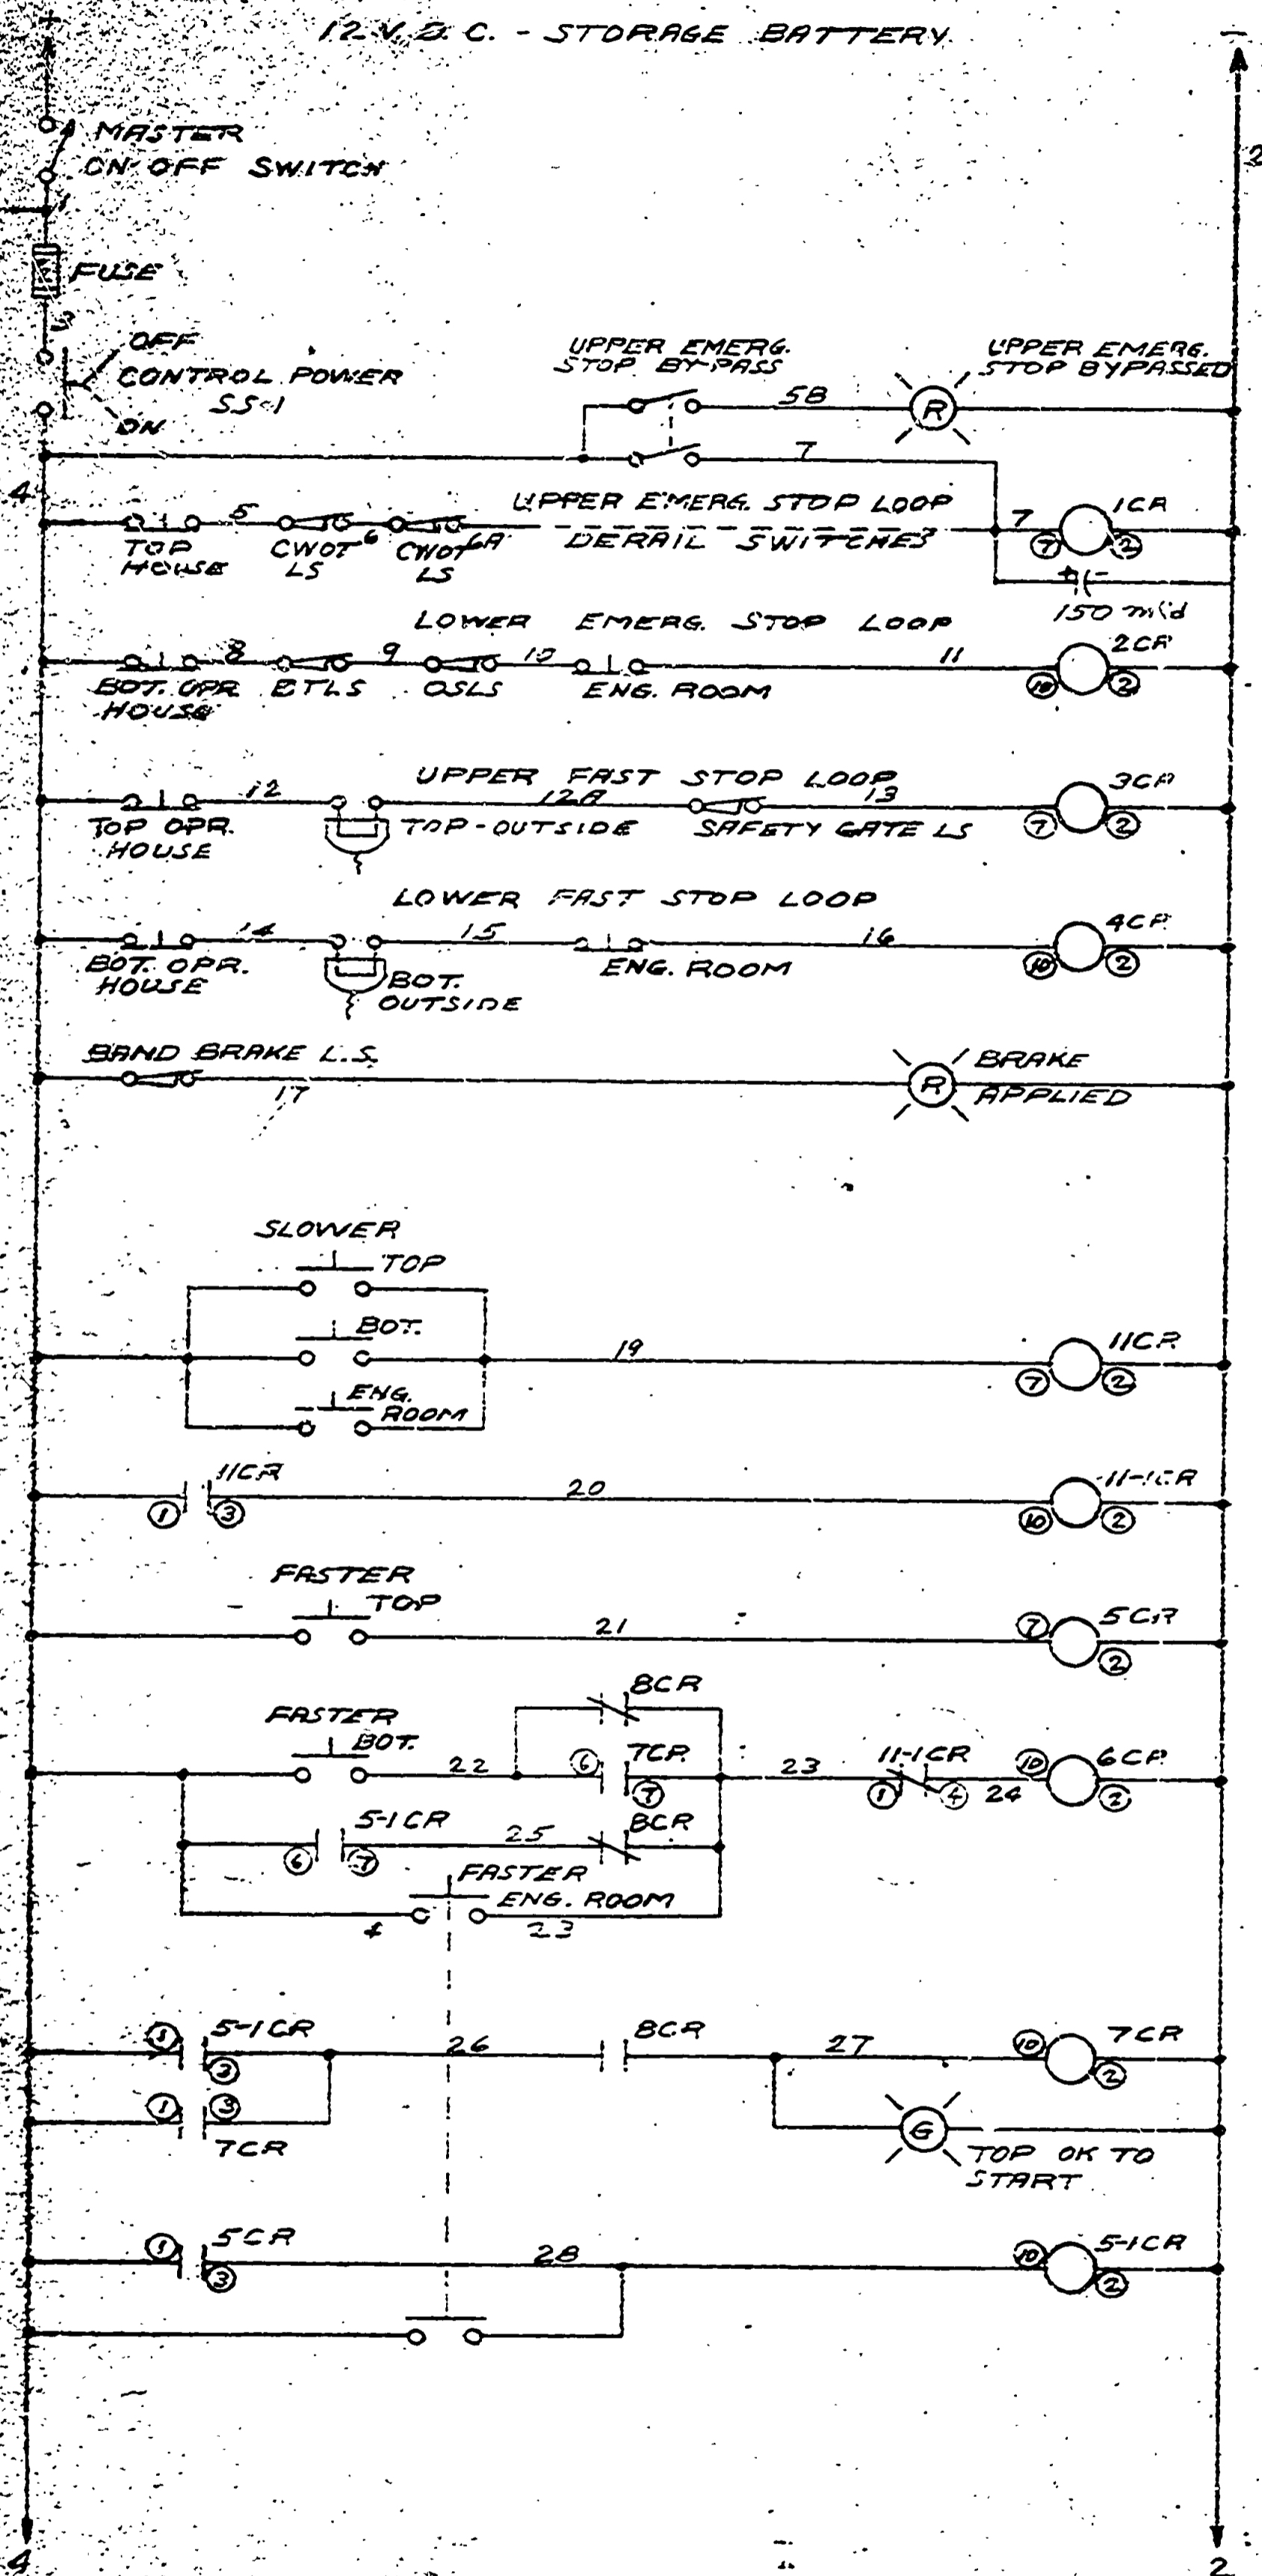 12 V.D.C. - STORAGE BATTERY
+
-
MASTER
ON-OFF SWITCH
2
1
FUSE
3
OFF
CONTROL POWER
SS-1
ON
UPPER EMERG.
STOP BY-PASS
UPPER EMERG.
STOP BYPASSED
5B
R
7
4
5
6
6A
UPPER EMERG. STOP LOOP
DERAIL SWITCHES
7
1CR
TOP
HOUSE
CWOT
LS
CWOT
LS
7
2
+
-
150 mfd
LOWER EMERG. STOP LOOP
8
9
10
11
2CR
BOT. OPR.
HOUSE
BTLS
OSLS
ENG. ROOM
10
2
UPPER FAST STOP LOOP
12
12A
13
3CR
TOP OPR.
HOUSE
TOP-OUTSIDE
SAFETY GATE LS
7
2
LOWER FAST STOP LOOP
14
15
16
4CR
BOT. OPR.
HOUSE
BOT.
OUTSIDE
ENG. ROOM
10
2
BAND BRAKE L.S.
17
R
BRAKE
APPLIED
SLOWER
TOP
BOT.
19
11CR
ENG.
ROOM
7
2
11CR
20
11-1CR
1
3
10
2
FASTER
TOP
21
7
5CR
2
8CR
FASTER
BOT.
22
6
7CR
7
23
11-1CR
1
4
24
10
6CR
2
5-1CR
25
8CR
6
7
FASTER
ENG. ROOM
4
23
1
5-1CR
3
26
8CR
27
10
7CR
2
1
3
7CR
G
TOP OK TO
START
1
5CR
3
28
10
5-1CR
2
4
2